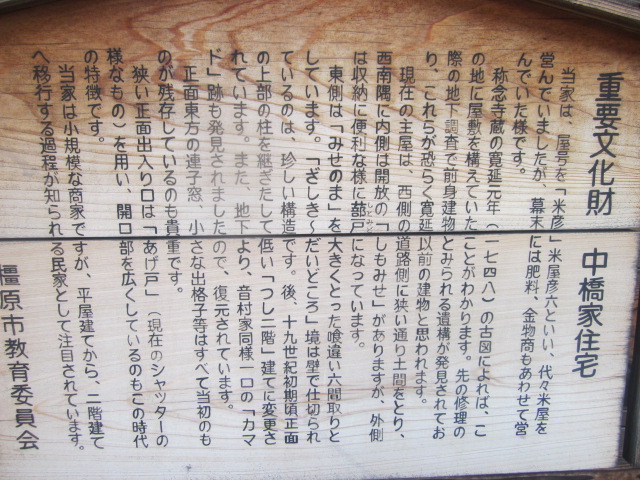 重要文化財 中橋家住宅
当家は、屋号を「米彦」米屋彦六といい、代々米屋を
営んでいましたが、幕末には肥料、金物商もあわせて営
んでいた様です。
称念寺蔵の寛延元年(一七四八)の古図によれば、こ
の地に屋敷を構えていたことがわかります。先の修理の
際の地下調査で前身建物とみられる遺構が発見されてお
り、これらが恐らく寛延以前の建物と思われます。
現在の主屋は、西側の道路側に狭い通り土間をとり、
西南隅に内側は開放の「しもみせ」がありますが、外側
は収納に便利な様に蔀戸になっています。
しとみど
東側は「みせのま」を大きくとった喰違い六間取りと
しています。「ざしき〜だいどころ」境は壁で仕切られ
ているのは、珍しい構造です。後、十九世紀初期頃正面
の上部の柱を継ぎたして低い「つし二階」建てに変更さ
れています。また、地下より、音村家同様一口の「カマ
ド」跡も発見されましたので、復元されています。
正面東方の連子窓、小さな出格子等はすべて当初のも
のが残存しているのも貴重です。
狭い正面出入り口は「あげ戸」(現在のシャッターの
様なもの)を用い、開口部を広くしているのもこの時代
の特徴です。
当家は小規模な商家ですが、平屋建てから、二階建て
へ移行する過程が知られる民家として注目されています。
橿原市教育委員会